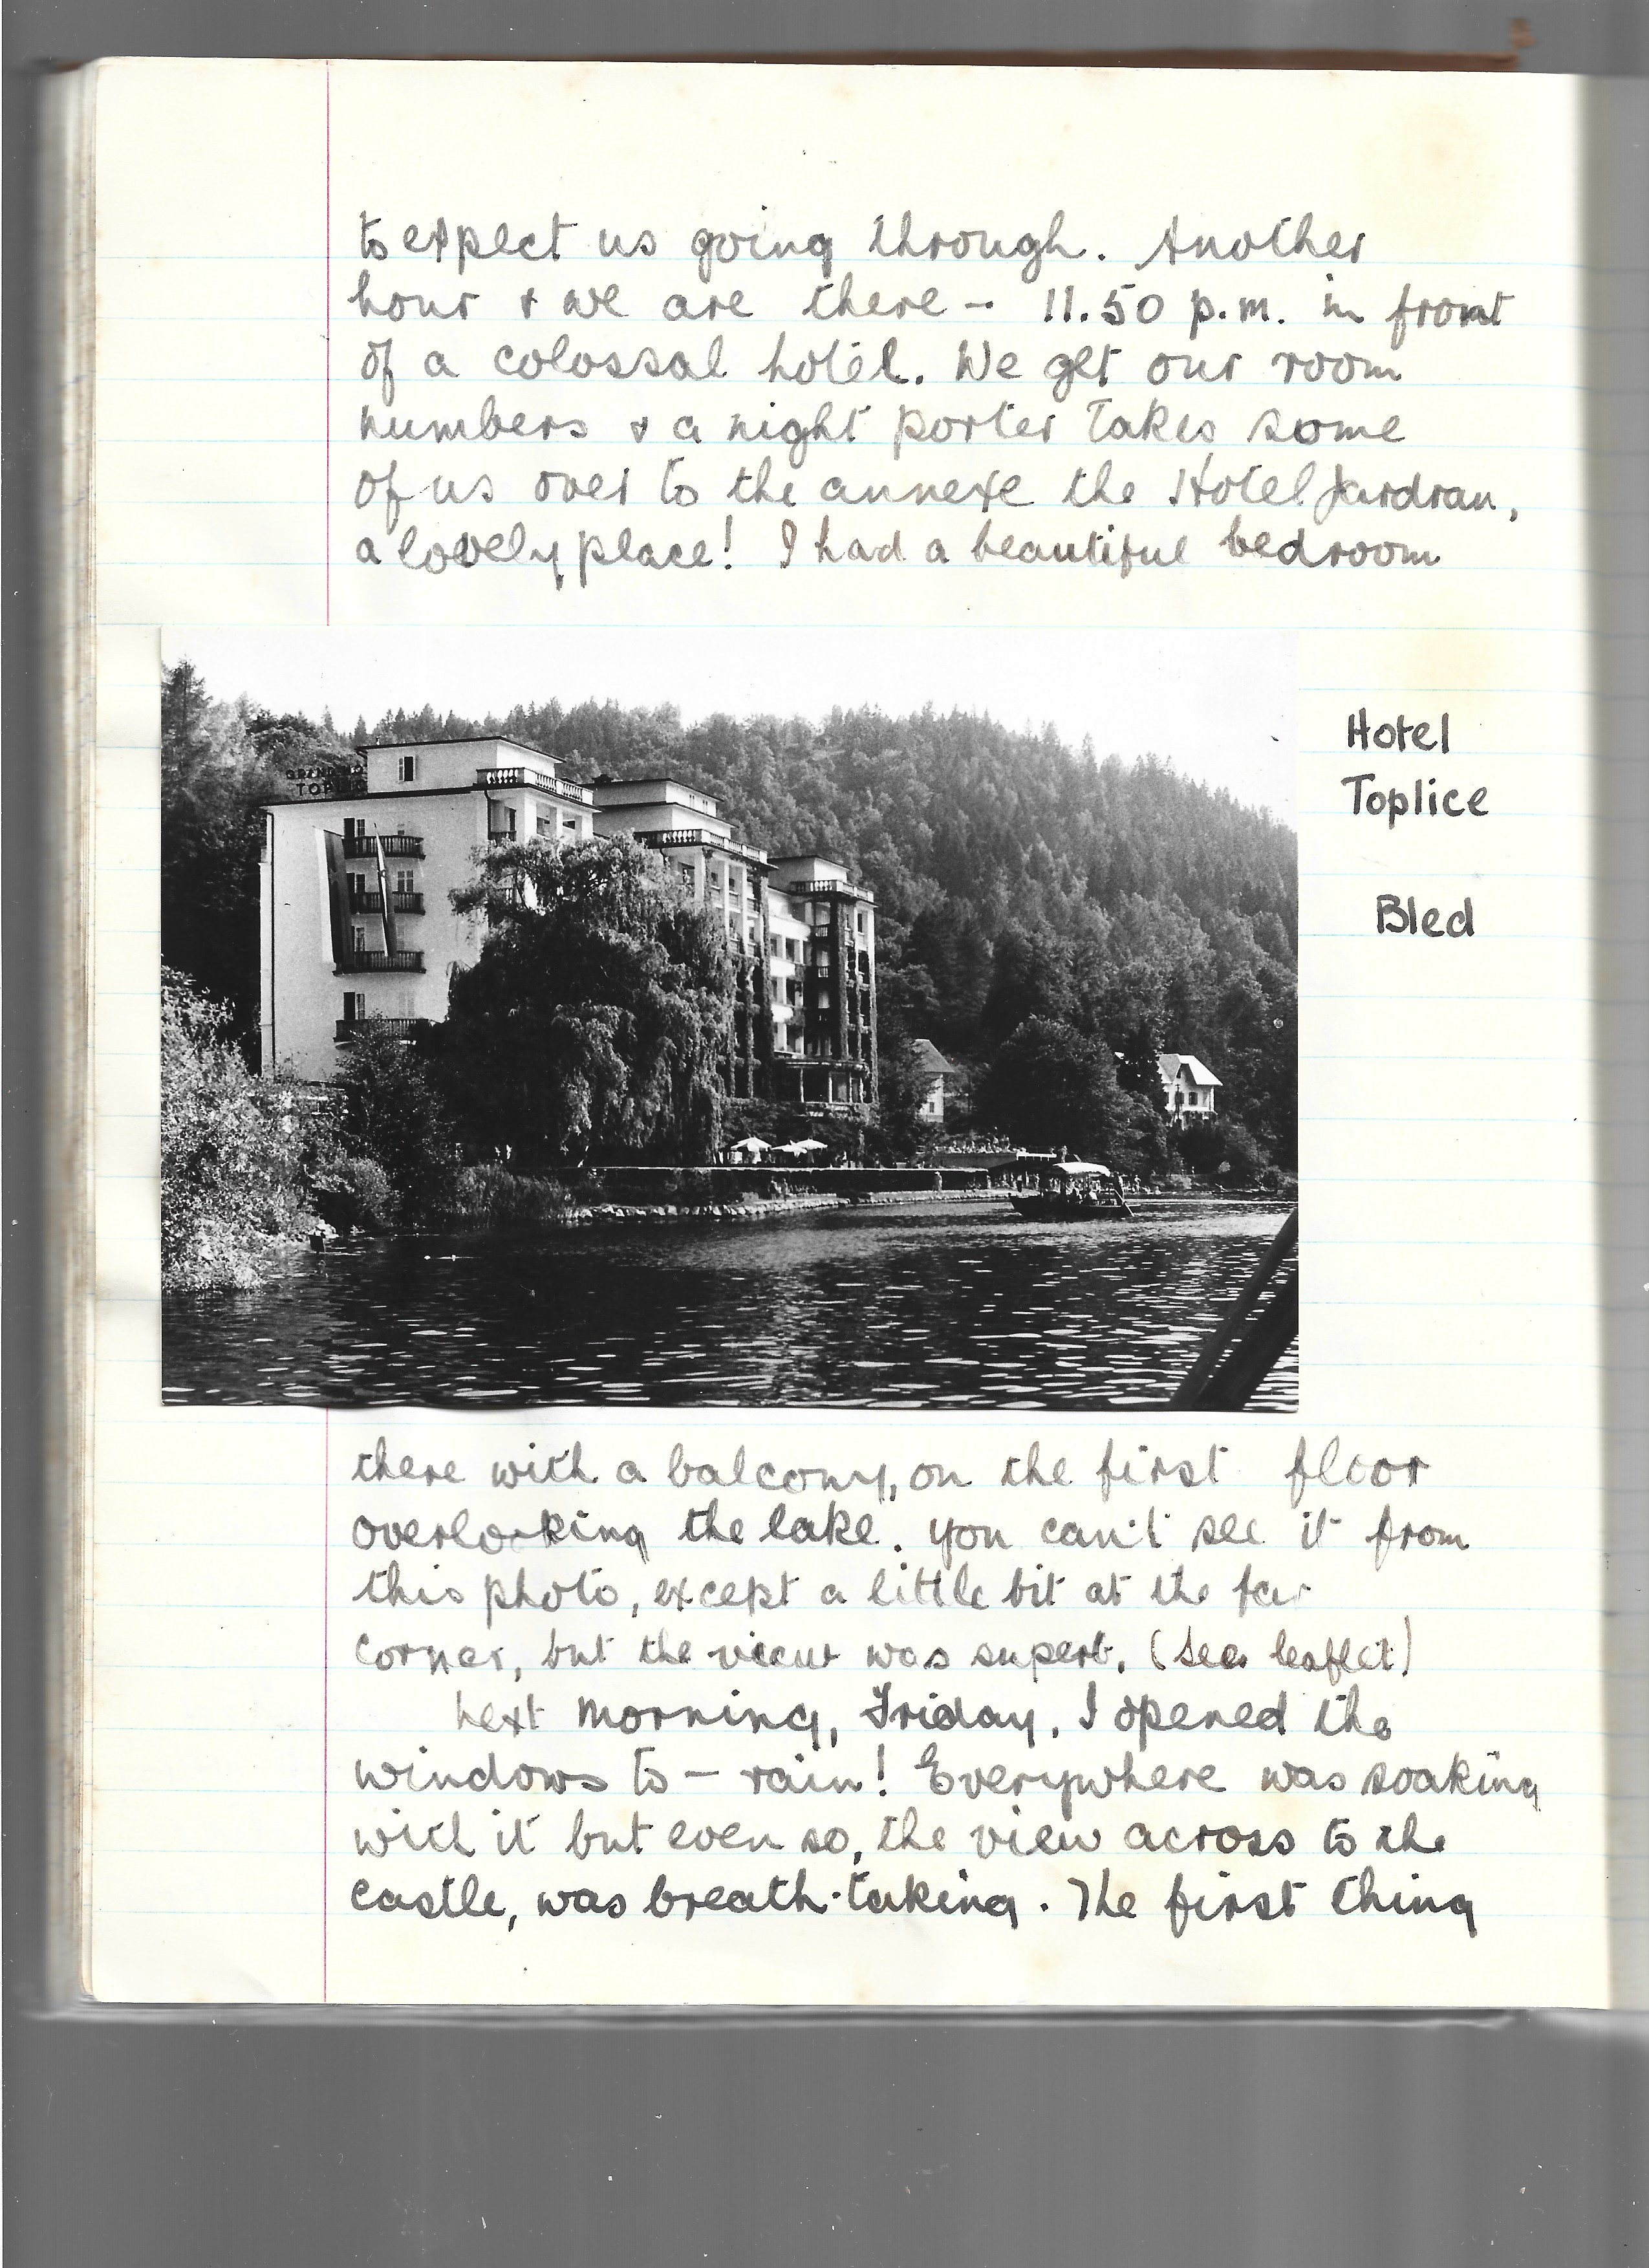 to expect us going through. Another
hour & we are there - 11.50 p.m. in front
of a colossal hotel. We get our room
numbers & a night porter takes some
of us over to the annexe the Hotel Jardran,
a lovely place! I had a beautiful bedroom
GRAND HO
TOPLIC
Hotel
Toplice
Bled
there with a balcony, on the first floor
overlooking the lake. You can't see it from
this photo, except a little bit at the far
corner, but the view was superb. (see leaflet)
Next morning, Friday, I opened the
windows to — rain! Everywhere was soaking
with it but even so, the view across to the
castle, was breath-taking. The first thing